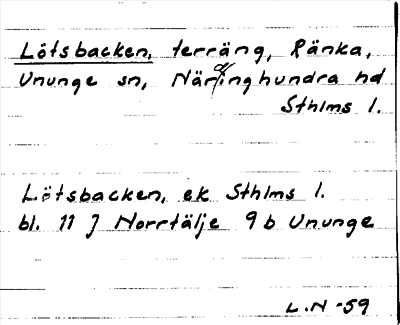 Lötsbacken, terräng, Ränka,
Ununge sn, Närdinghundra hd
Sthlms l.
Lötsbacken, ek Sthlms l.
bl. 11 J Norrtälje 9b Ununge
L.N -59